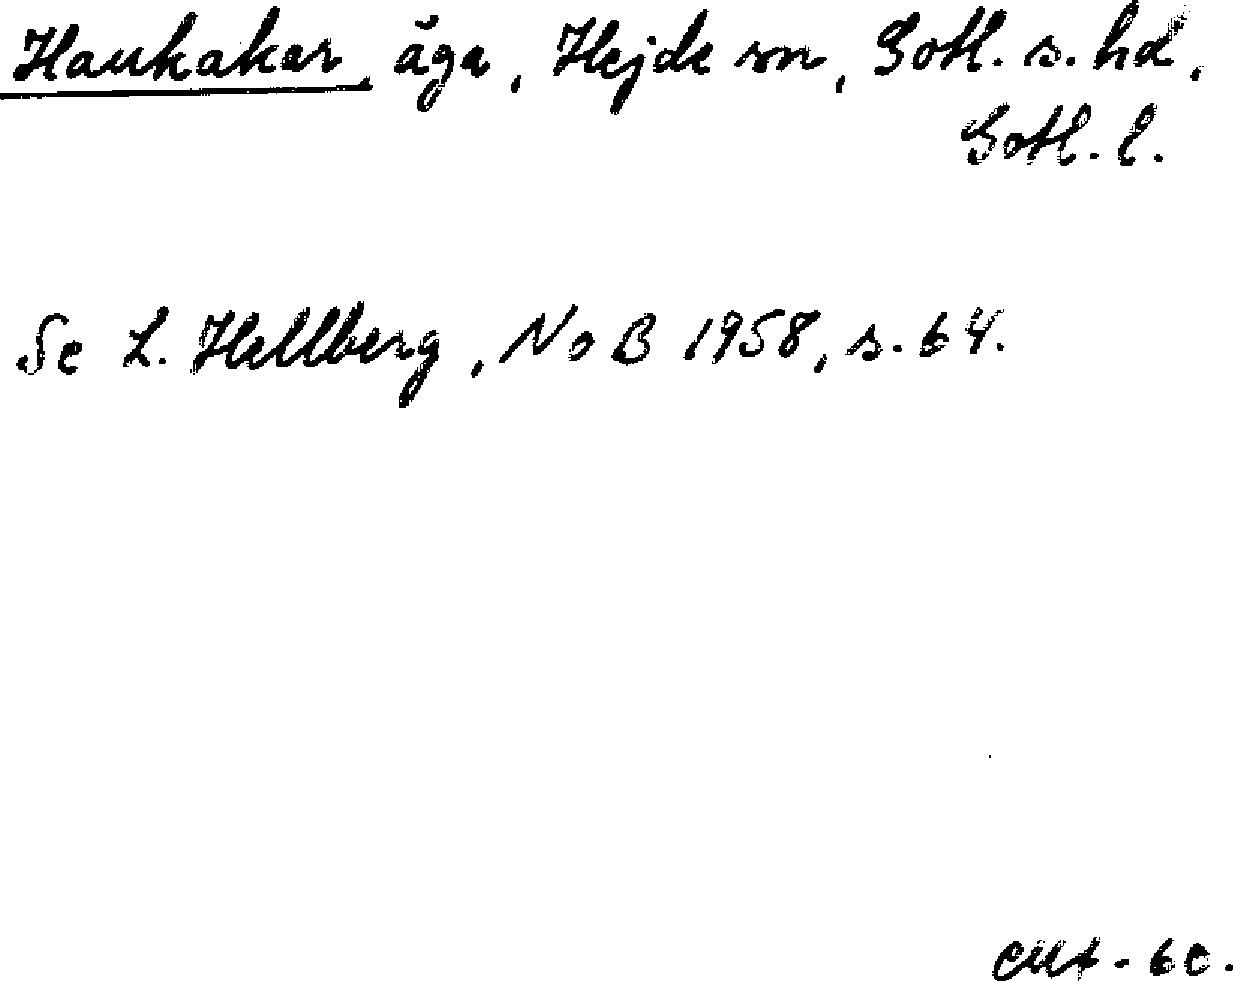 Haukaker, äga, Hejde sn, Gotl. s. hd,
Gotl. l.
Se L. Hellberg, NoB 1958, s. 64.